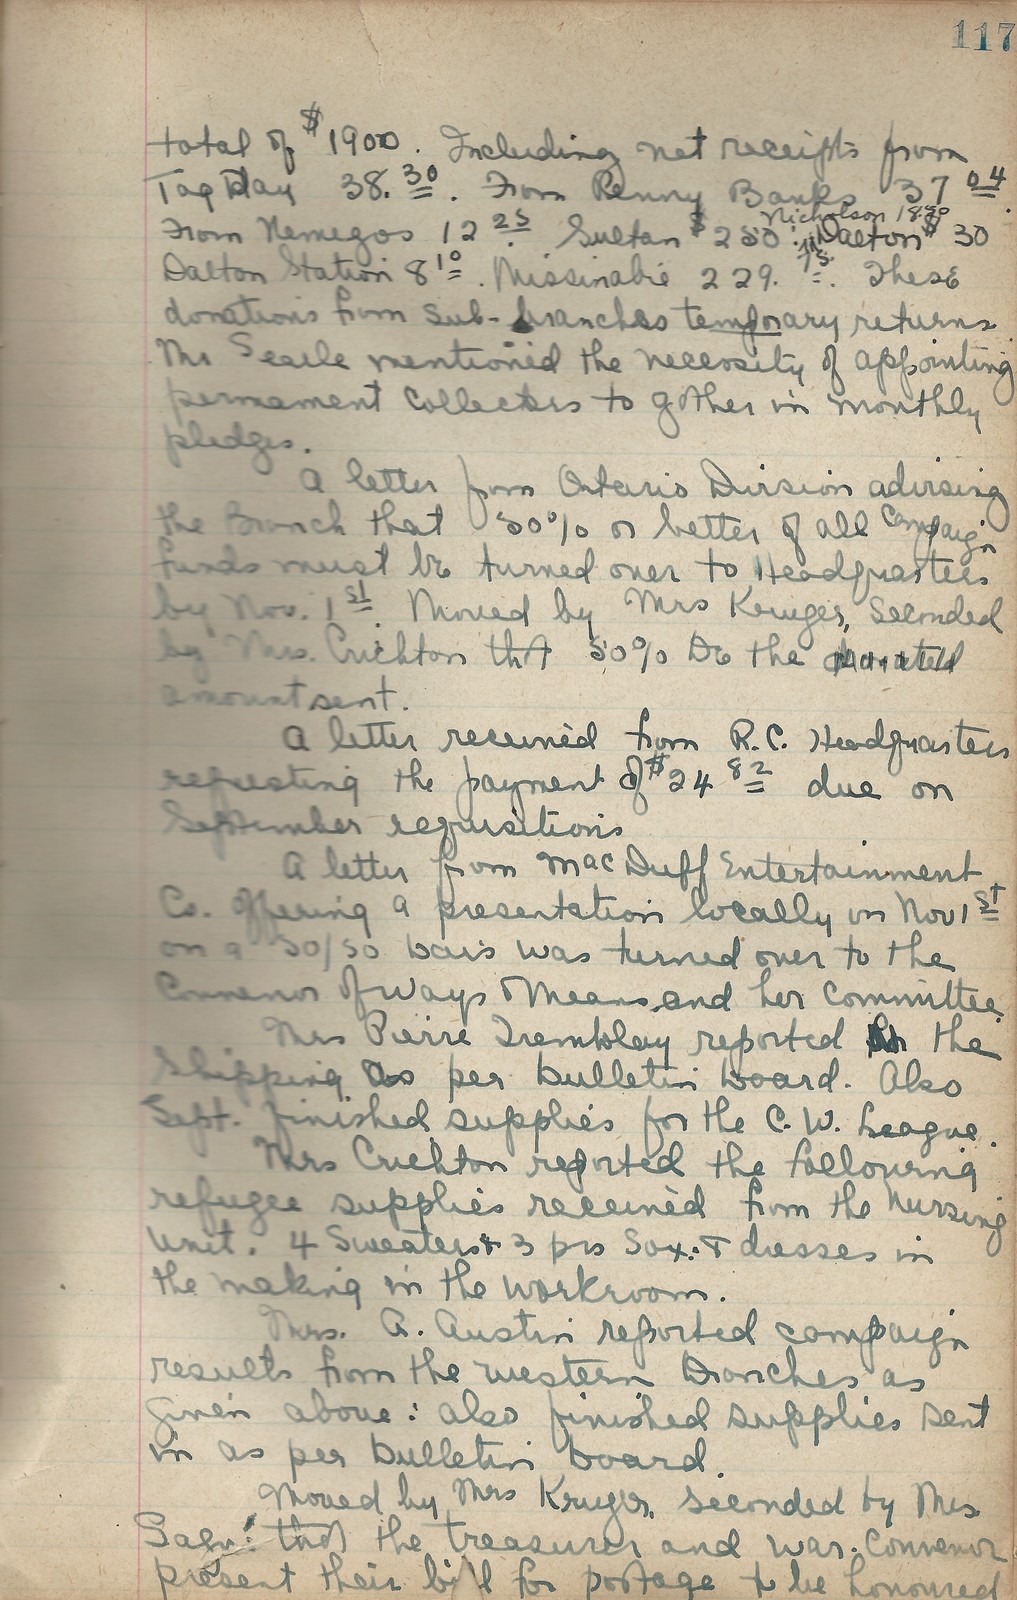 117
total of $1900. Including net receipts from
Tag Day 38.30. From Penny Banks 37 04.
Nicholson 18.50
From Nemegos 12 25. Sultan $250. Dalton $30
Dalton Station 8 10. Missinabie 229. 75. These
donations from sub-branches temporary returns.
Mr Searle mentioned the necessity of appointing
permament collectors to gather in monthly
pledges.
A letter from Ontario Division advising
the Branch that 50% or better of all campaign
funds must be turned over to Headquarters
by Nov. 1st. Moved by Mrs Kruger, seconded
by Mrs. Crichton that 50% be the
amount sent.
A letter received from R.C. Headquarters
requesting the payment of $24 82 due on
September requisitions
A letter from MacDuff Entertainment
Co. offering a presentation locally on Nov 1st
on a 50/50 basis was turned over to the
Convenor of Ways & Means and her committee.
Mrs Pierre Tremblay reported the
Shipping as per bulletin board. Also
Sept. finished supplies for the C. W. League.
Mrs Crichton reported the following
refugee supplies received from the Nursing
Unit. 4 Sweaters & 3 prs Sox. & dresses in
the making in the workroom.
Mrs. A. Austin reported campaign
results from the western Branches as
given above: also finished supplies sent
in as per bulletin board.
Moved by Mrs Kruger, seconded by Mrs
that the treasurer and war convenor
present their bill for postage to be honoured